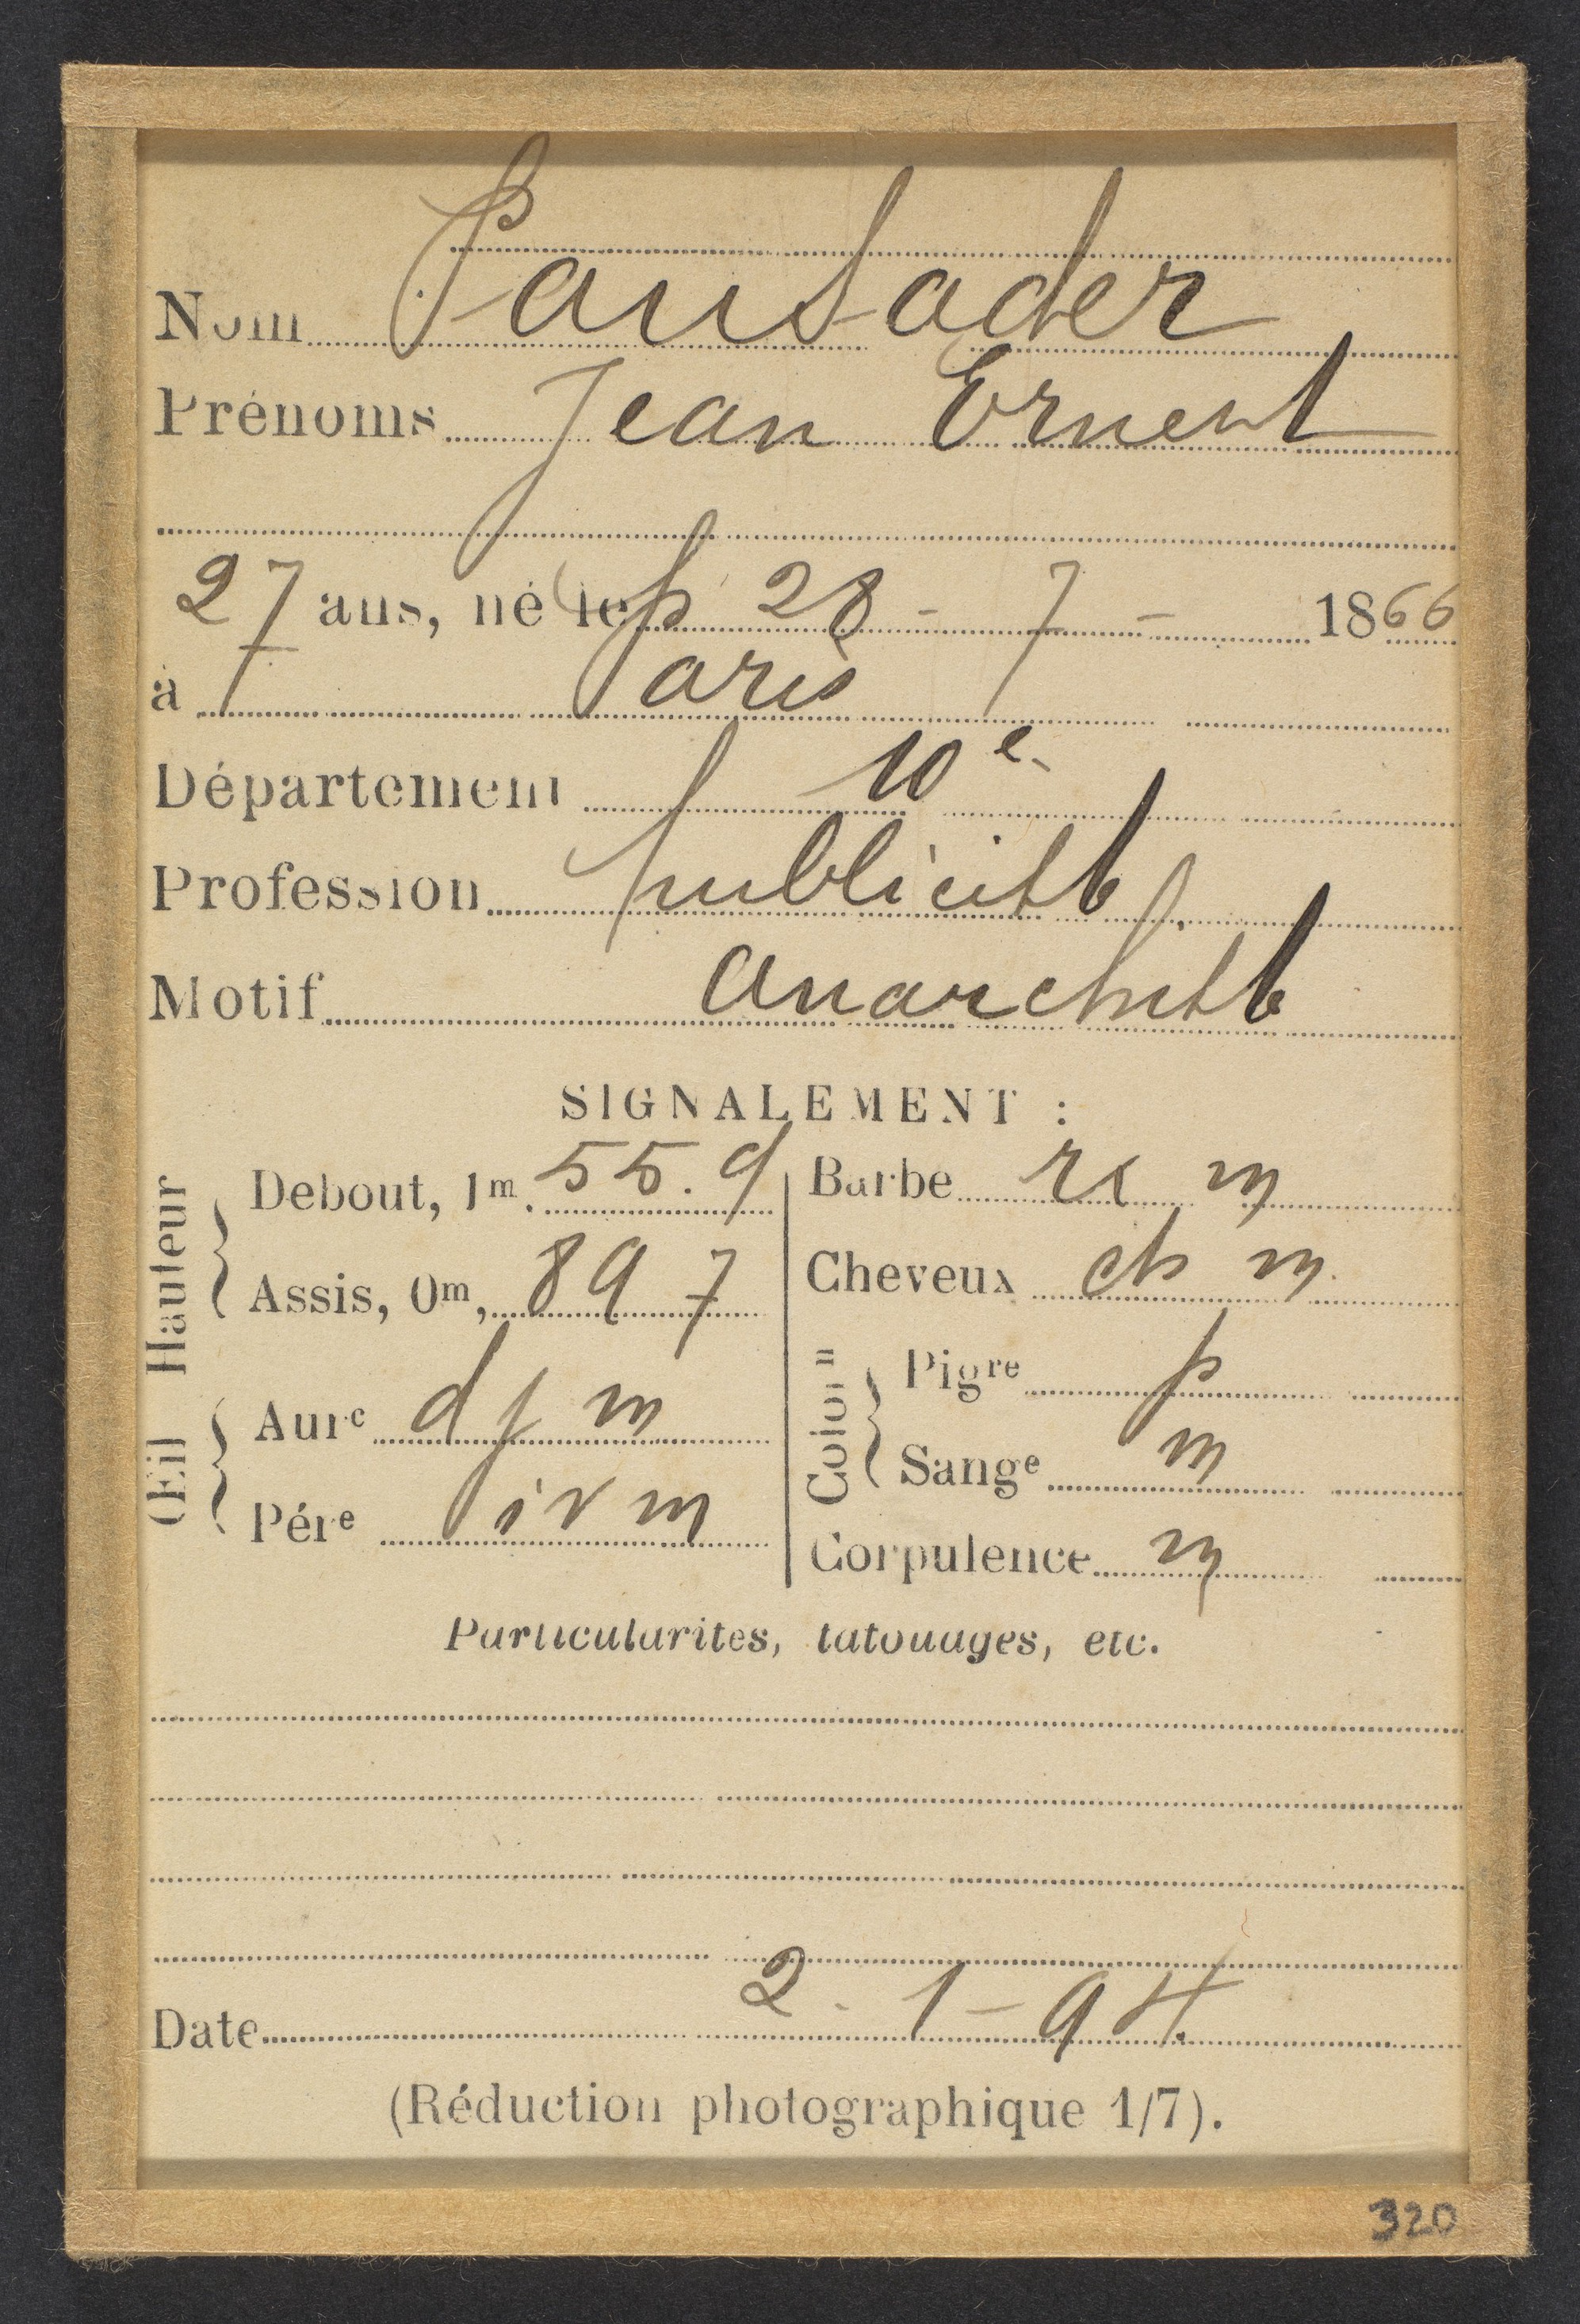 Nom Pausader
Prénoms Jean Ernest
27 ans, né le 28 - 7 - 1866
à Paris
Département 10e
Profession publiciste
Motif anarchiste
SIGNALEMENT :
Hauteur
Debout, 1m. 55.9
Assis, 0m, 89 7
Œil
Aure
Pére m
Barbe m
Cheveux ch m
Colon
Pigre p
Sange m
Corpulence m
Particularités, tatouages, etc.
Date 2. 1 - 94.
(Réduction photographique 1/7).
320